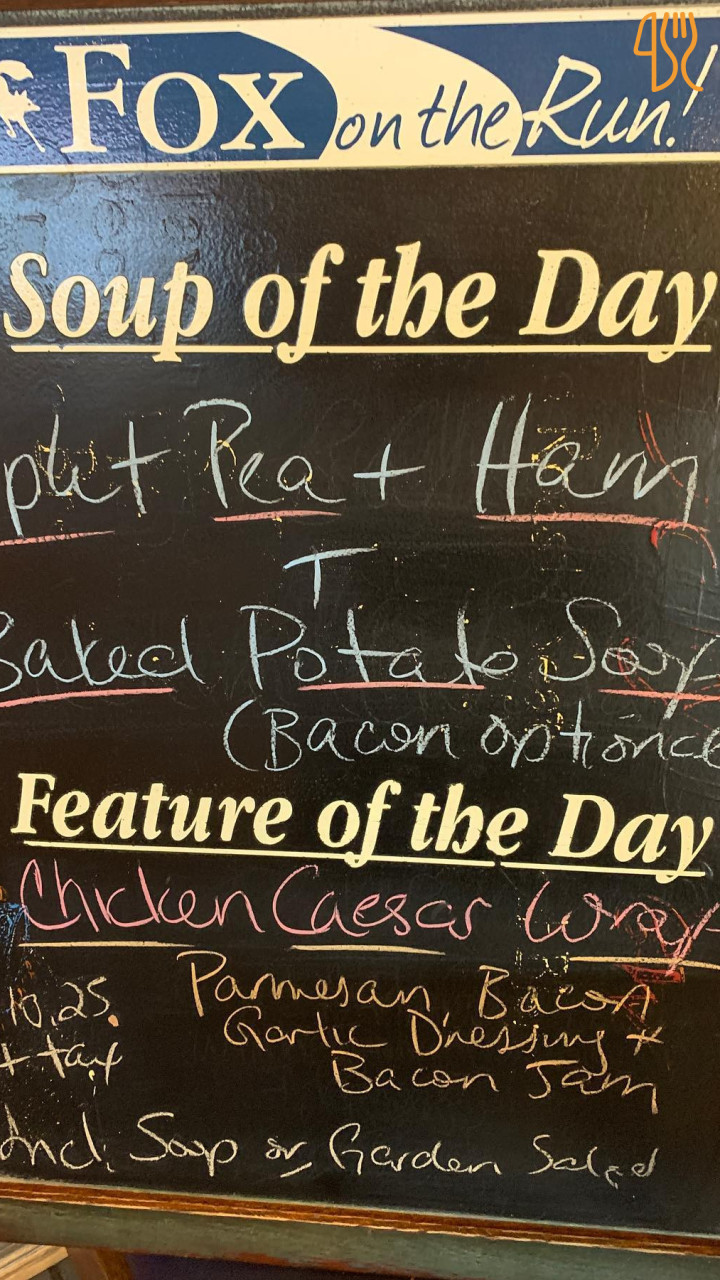 Fox on the Run!
Soup of the Day
plit Pea + Ham
Baked Potato Soup
(Bacon optiona
Feature of the Day
Chicken Caesar Wrap
10.25 Parmesan, Bacon
+ tax Garlic Dressing +
Bacon Jam
Incl. Soup or Garden Salad